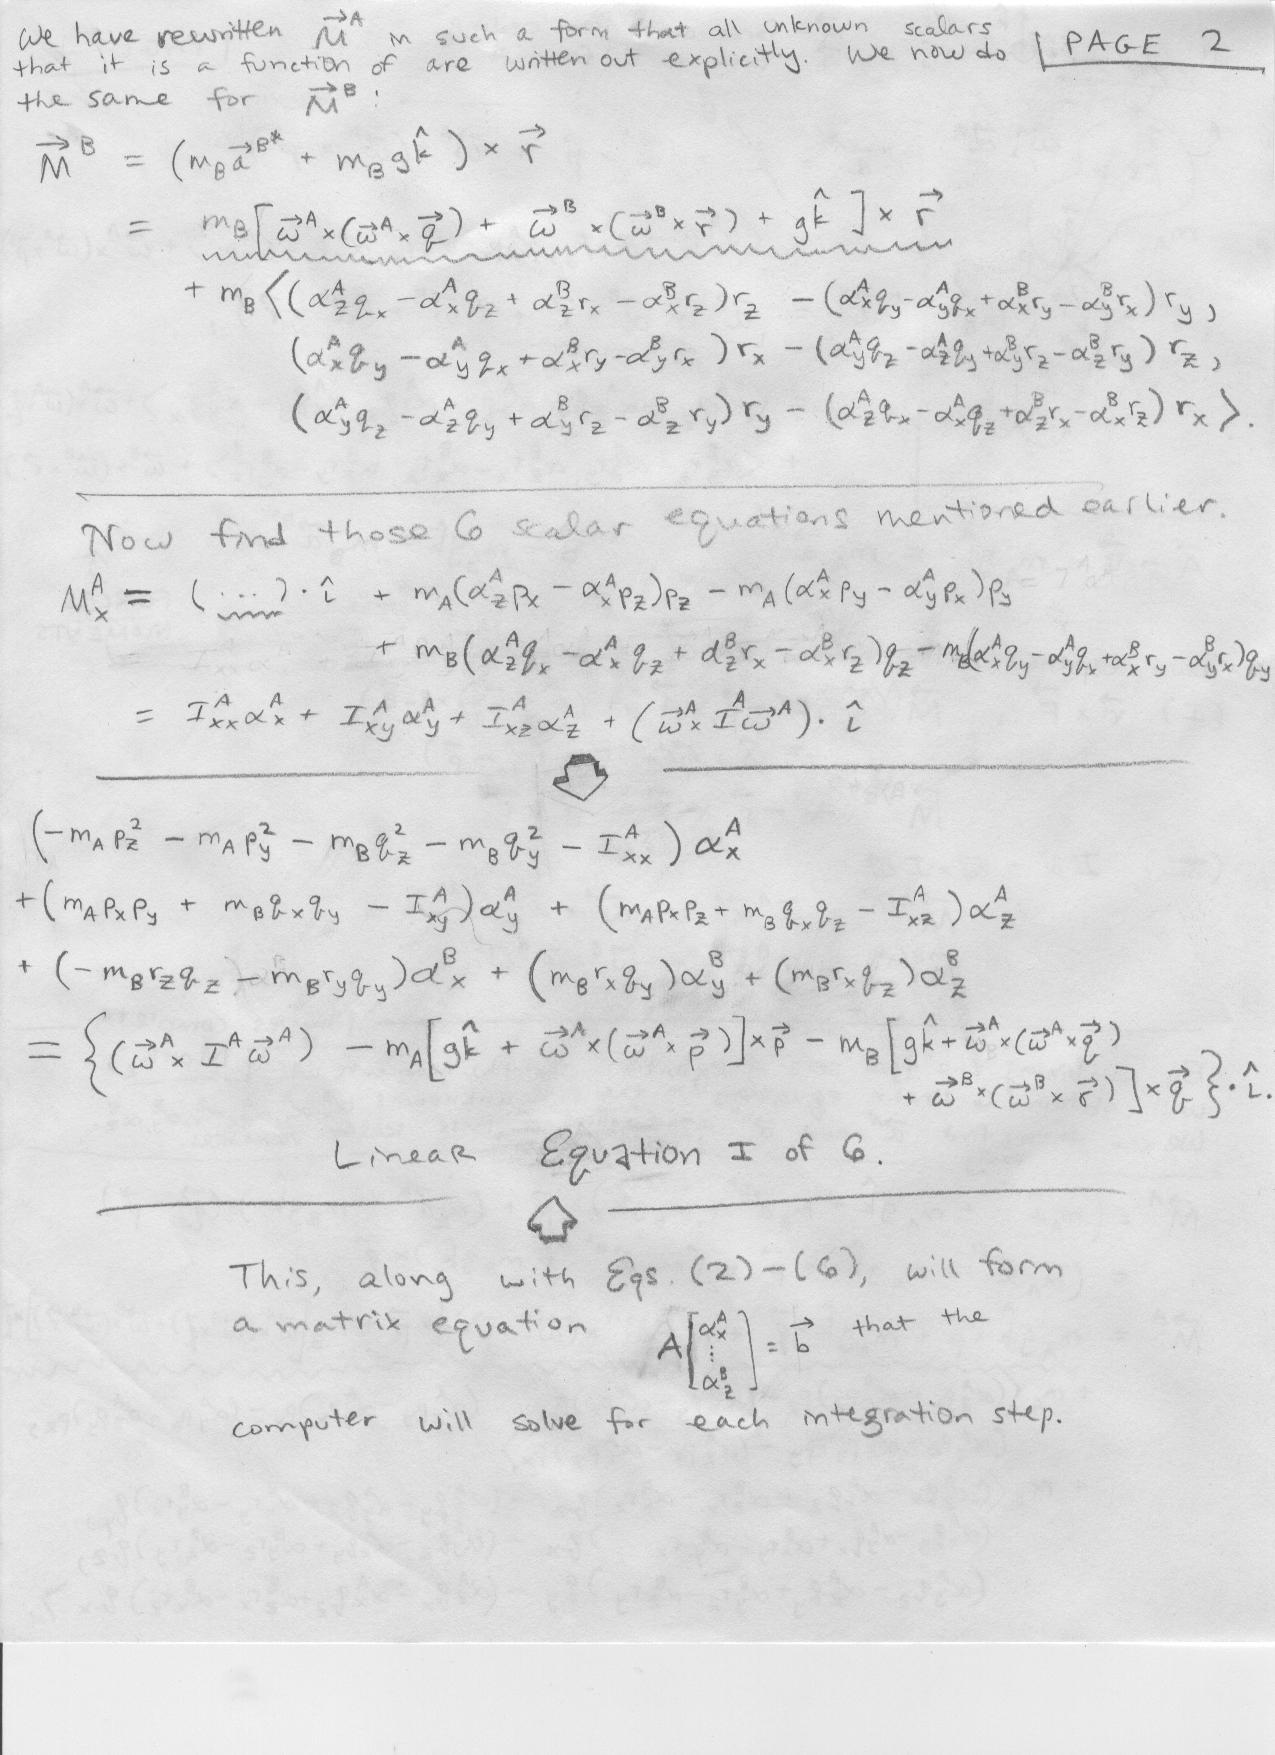 We have rewritten M⃗^A in such a form that all unknown scalars
PAGE 2
that it is a function of are written out explicitly. We now do
the same for M⃗^B:
M⃗^B = (m_B a⃗^B* + m_B g k̂) × r⃗
= m_B[ω⃗^A × (ω⃗^A × q⃗) + ω⃗^B × (ω⃗^B × r⃗) + g k̂] × r⃗
+ m_B⟨(α_z^A q_x − α_x^A q_z + α_z^B r_x − α_x^B r_z) r_z − (α_x^A q_y − α_y^A q_x + α_x^B r_y − α_y^B r_x) r_y,
(α_x^A q_y − α_y^A q_x + α_x^B r_y − α_y^B r_x) r_x − (α_y^A q_z − α_z^A q_y + α_y^B r_z − α_z^B r_y) r_z,
(α_y^A q_z − α_z^A q_y + α_y^B r_z − α_z^B r_y) r_y − (α_z^A q_x − α_x^A q_z + α_z^B r_x − α_x^B r_z) r_x⟩.
Now find those 6 scalar equations mentioned earlier.
M_x^A = (...)·î + m_A(α_z^A p_x − α_x^A p_z)p_z − m_A(α_x^A p_y − α_y^A p_x)p_y
+ m_B(α_z^A q_x − α_x^A q_z + α_z^B r_x − α_x^B r_z)q_z − m_B(α_x^A q_y − α_y^A q_x + α_x^B r_y − α_y^B r_x)q_y
= I_xx^A α_x^A + I_xy^A α_y^A + I_xz^A α_z^A + (ω⃗^A × I^A ω⃗^A)·î
(−m_A p_z^2 − m_A p_y^2 − m_B q_z^2 − m_B q_y^2 − I_xx^A) α_x^A
+ (m_A p_x p_y + m_B q_x q_y − I_xy^A) α_y^A + (m_A p_x p_z + m_B q_x q_z − I_xz^A) α_z^A
+ (−m_B r_z q_z − m_B r_y q_y) α_x^B + (m_B r_x q_y) α_y^B + (m_B r_x q_z) α_z^B
= {(ω⃗^A × I^A ω⃗^A) − m_A[g k̂ + ω⃗^A × (ω⃗^A × p⃗)] × p⃗ − m_B[g k̂ + ω⃗^A × (ω⃗^A × q⃗)
+ ω⃗^B × (ω⃗^B × r⃗)] × q⃗}·î.
Linear Equation I of 6.
This, along with Eqs. (2)−(6), will form
a matrix equation A[α_x^A ⋮ α_z^B] = b⃗ that the
computer will solve for each integration step.